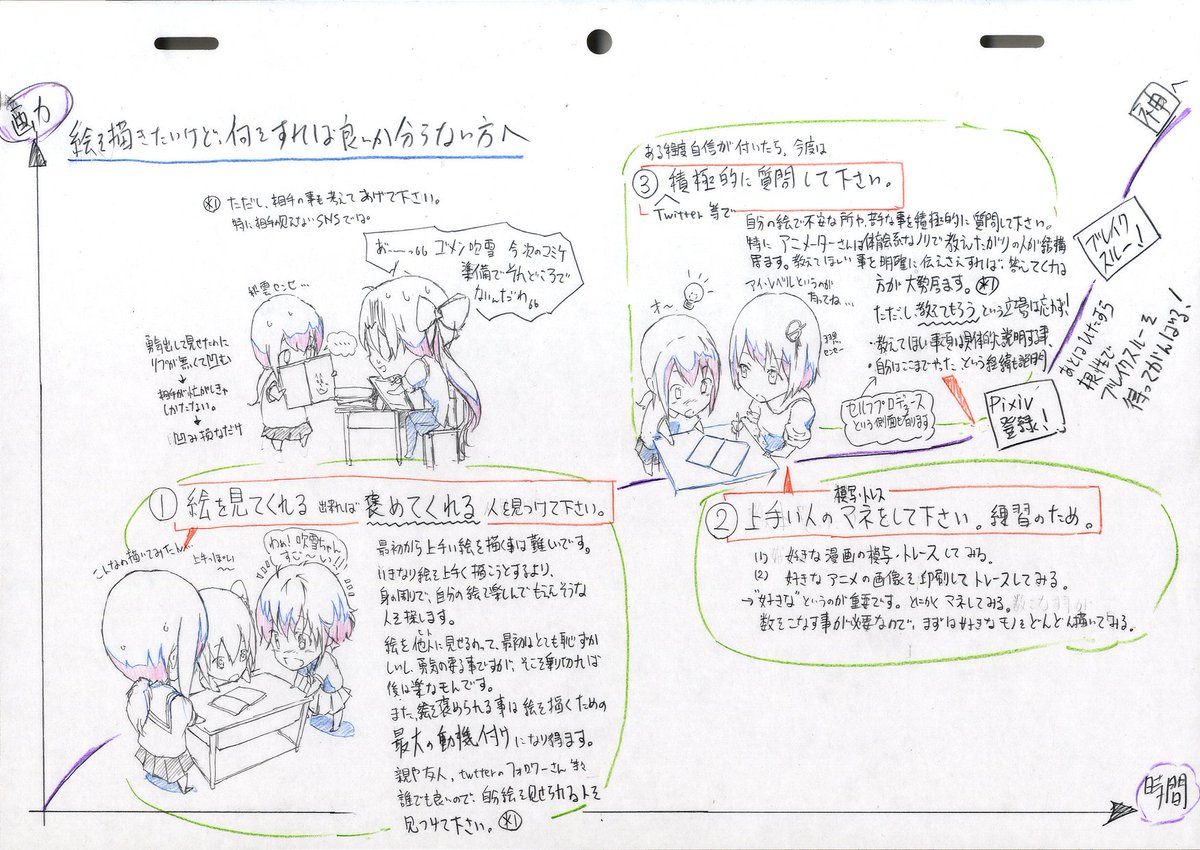 画力
絵を描きたいけど、何をすれば良いか分らない方へ
※1 ただし、相手の事も考えてあげて下さい。
特に相手が見えないSNSでは。
あ〜〜っ、ゴメン吹雪 今次のコミケ
準備でそれどころで
ないんだわ
センセ…
勇気出して見せたのに
リプが無くて凹む
↓
相手が忙がしきゃ
しかたない。
↓
凹み損なだけ
① 絵を見てくれる 出来れば 褒めてくれる 人を見つけて下さい。
こんなの描いてみたんだ…
上手っぽい
わぁ!吹雪ちゃん
すご〜い!!!
最初から上手い絵を描く事は難いです。
いきなり絵を上手く描こうとするより、
身の周りで、自分の絵で楽しんでもらえそうな
人を探します。
絵を他人に見せるのって、最初はとても恥ずか
しいし、勇気の要る事ですが、そこを乗り切れば
後は楽なモンです。
また、絵を褒められる事は絵を描くための
最大の動機付けになり得ます。
親や友人、twitterのフォロワーさん等々
誰でも良いので、自分の絵を見せられる人を
見つけて下さい。※1
ある程度自信が付いたら、今度は
③ 積極的に質問して下さい。
Twitter等で
自分の絵で不安な所や、苦手な事を積極的に質問して下さい。
特にアニメーターさんは体育会系なノリで教えたがりの人が結構
居ます。教えてほしい事を明確に伝えさえすれば、答えてくれる
方が大勢居ます。※1
ただし、教えてもらうという立場は忘れず!
・教えてほしい事項は具体的に説明する事、
・自分はここまでやったという経緯も説明
アイレベルというのが
有ってね…
オ〜
センセー
セルフプロデュース
という側面も有ります
Pixiv
登録!
② 上手い人のマネをして下さい。練習のため。
模写・トレス
(1) 好きな漫画の模写・トレースしてみる。
(2) 好きなアニメの画像を印刷してトレースしてみる。
→"好きな"というのが重要です。とにかくマネしてみる。
数をこなす事が必要なので、まずは好きなモノをどんどん描いてみる。
神へ
ブレイク
スルー!
あとはひたすら
根性で
ブレイクスルーを
待ってがんばる!
時間